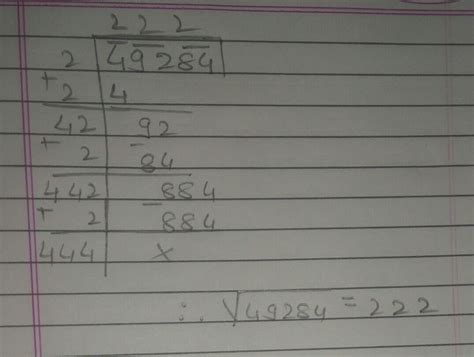 222
2 49284
+2 4
42 92
+ 2 -84
442 884
+ 2 -884
444 ×
∴ √49284 = 222